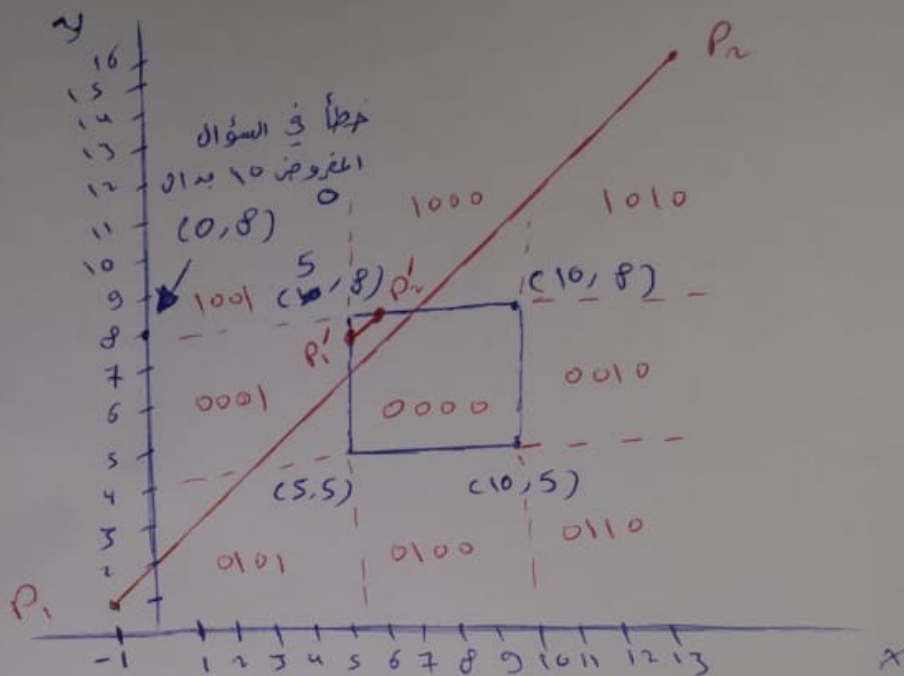 y
16
15
14
13
12
11
10
9
8
7
6
5
4
3
2
P₂
خطأ في السؤال
المفروض 10 بدال
0
(0,8)
1000
1010
1001
5
(10,8)
P₂'
(10,8)
P₁'
0001
0000
0010
(5,5)
(10,5)
0101
0100
0110
P₁
-1 1 2 3 4 5 6 7 8 9 10 11 12 13
x